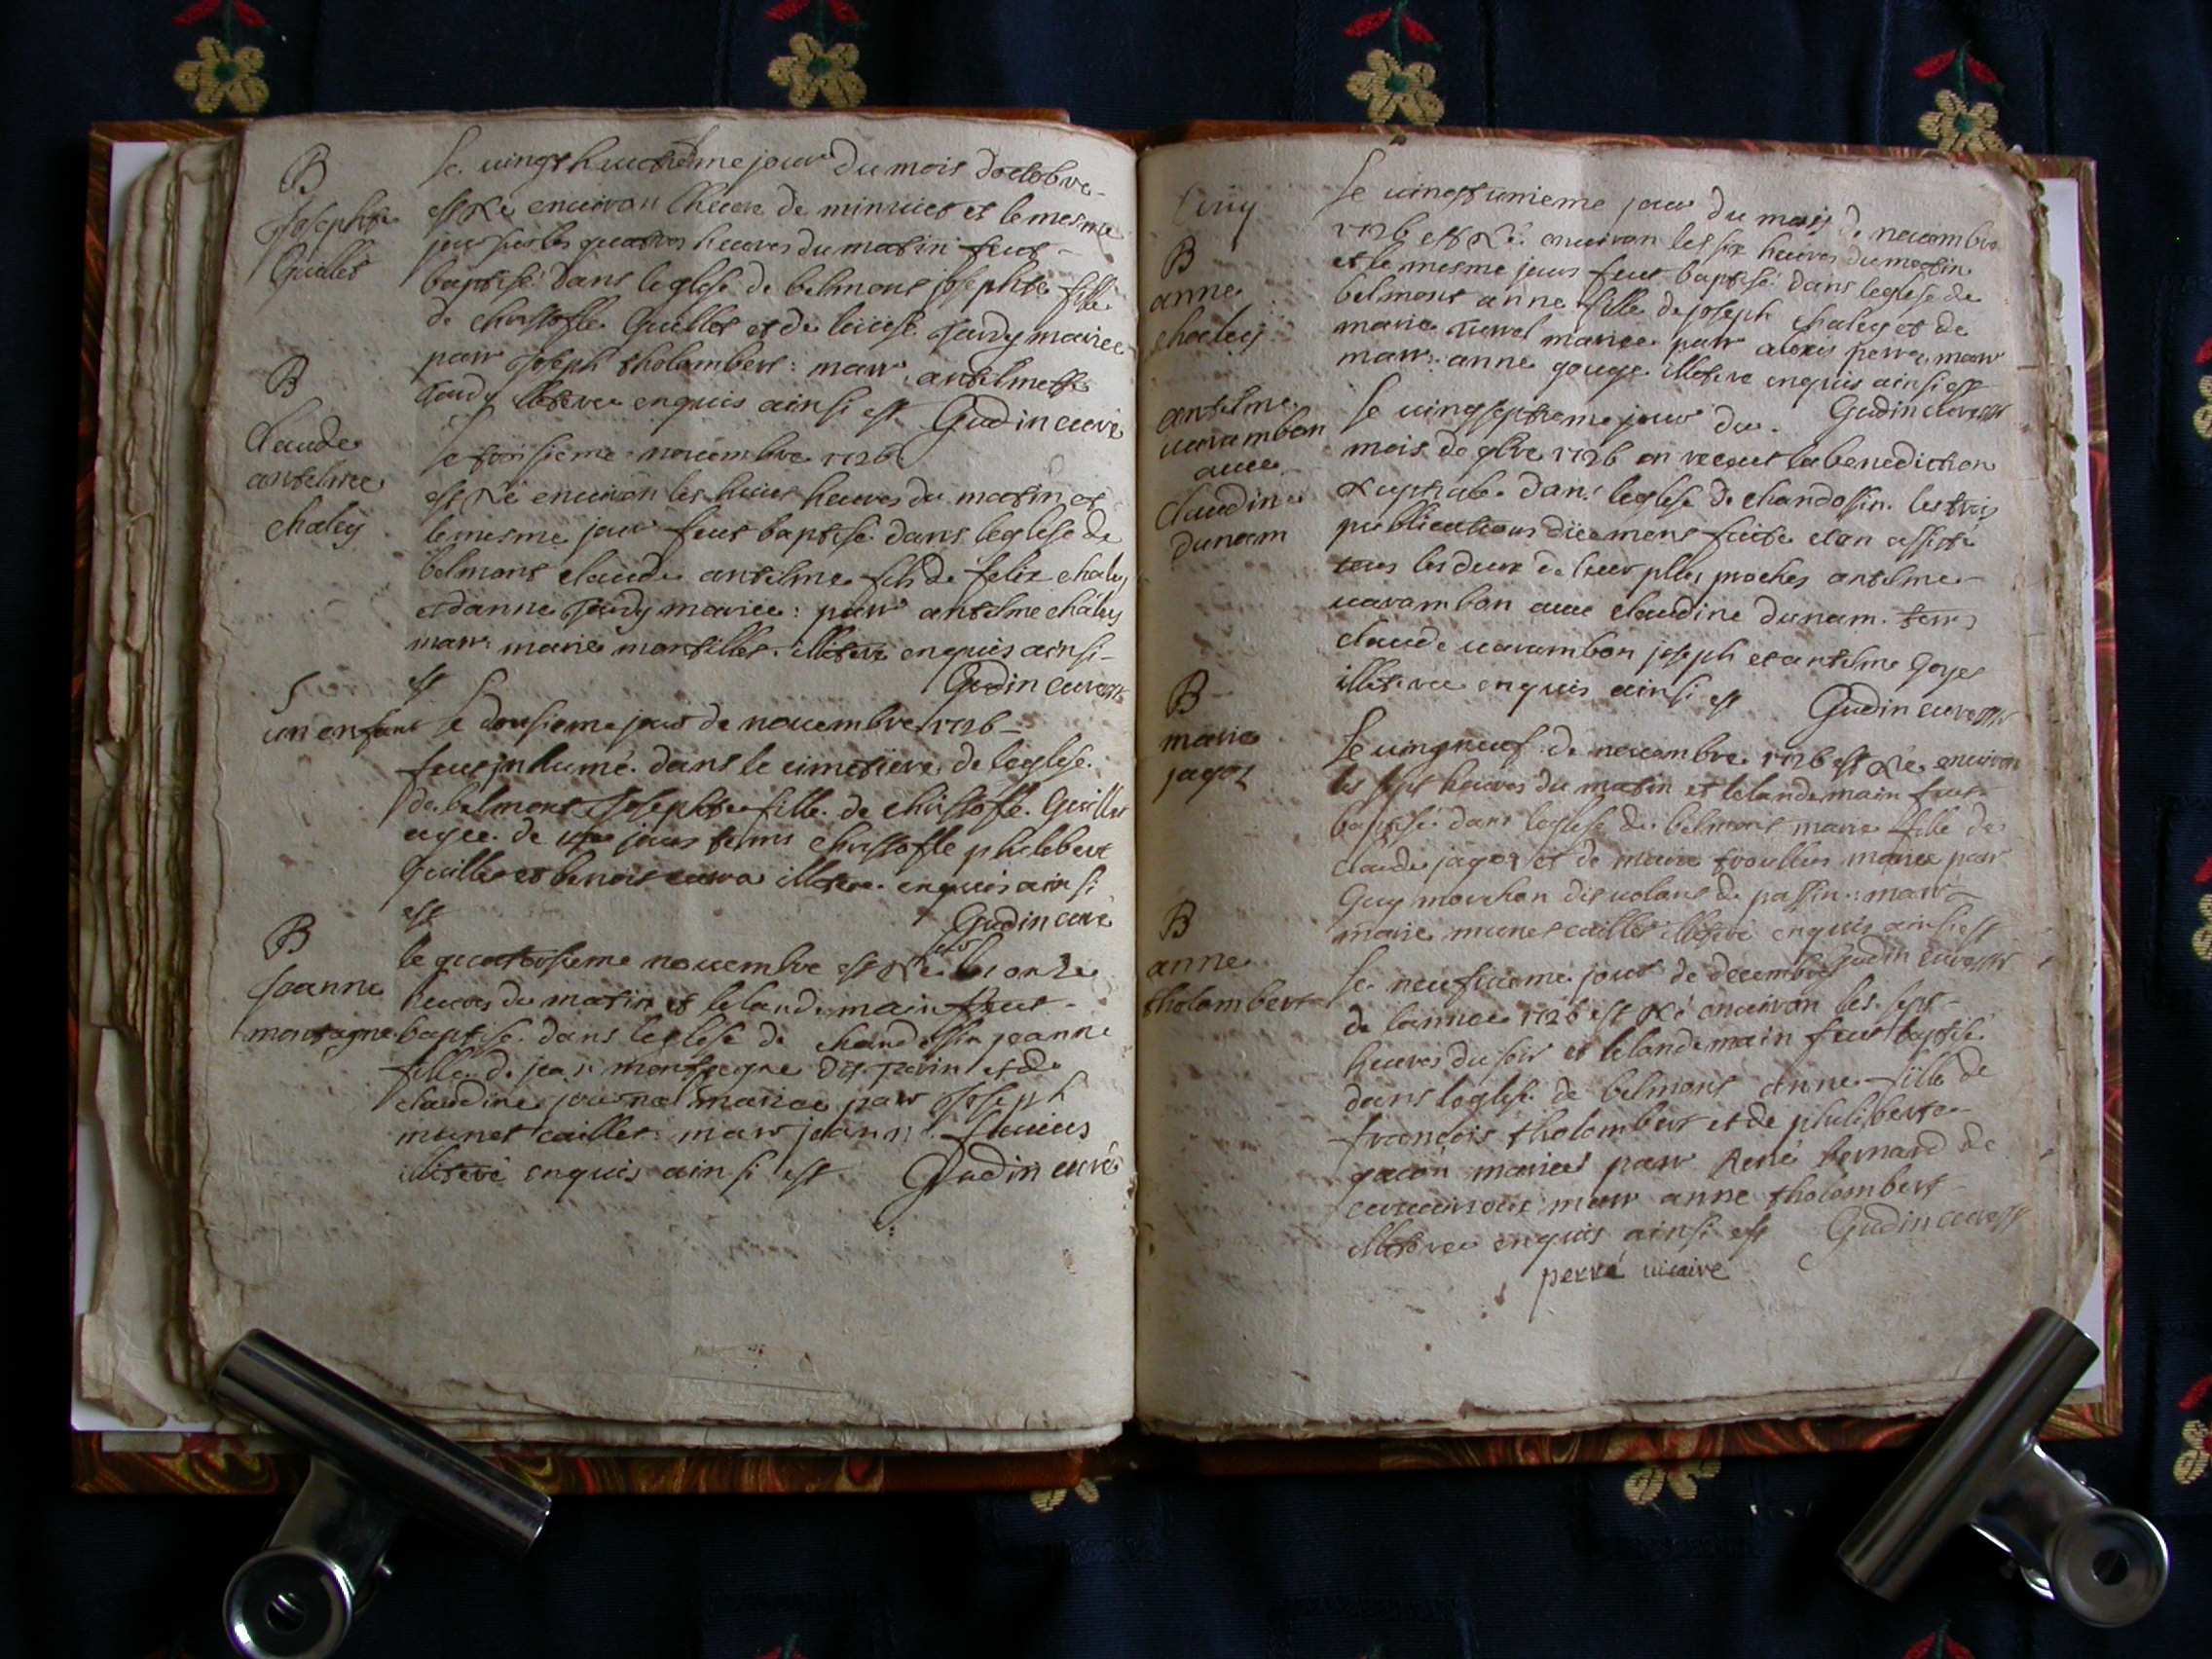 B
Josephte
Guillet
Le vingt huictième jour du mois doctobre
est Né enuiron lheure de minuict et le mesme
jour sus les quattres heures du matin feut
baptisé dans leglese de belmont josephte fille
de christofle Guillet et de Tardy mariee
parr Joseph tholombert : marr antelmette
tardy illiteree enquis ainsi est Gudin curé
B
Claude
antelme
chaley
Le novembre 1726
est Né enuiron les huict heures du matin et
le mesme jour feut baptisé dans leglese de
belmont claude antelme fils de felix chaley
et danne Tardy mariee : parr antelme chaley
marr marie montillet illiteré enquis ainsi
est Gudin curé
S
un enfant
Le dousieme jour de novembre 1726
feut inhumé dans le cimetiere de leglese
de belmont Josephte fille de christofle Guillet
agee de jours tems christofle philebert
Guillet et benoit illitere enquis ainsi
est Gudin curé
B
Joanne
montagne
le quattorsieme novembre est Né sur les onze
heures du matin et le landemain feut
baptisé dans leglese de chandossin jeanne
fille de jean montagne dit et de
claudine mariee parr Joseph
munet caillet marr jeanne
illiteré enquis ainsi est Gudin curé
B
anne
chaley
Le vingt unieme jour du mois de novembre
1726 est Né enuiron les six heures du matin
et le mesme jour feut baptisé dans leglese de
belmont anne fille de joseph chaley et de
marie mariee parr alexis perra marr
marr anne gouge illitere enquis ainsi est
Gudin curé
antelme
varambon
avec
claudine
dunam
Le vingt septieme jour du
mois de 9bre 1726 on receut la benediction
Nuptiale dans leglese de chandossin les trois
publications düement faite et on assisté
tous les deux de leur plus proches antelme
varambon avec claudine dunam tems
claude varambon joseph et antelme Goyet
illiteree enquis ainsi est Gudin curé
B
marie
jagot
Le vingt neuf de novembre 1726 est Né enuiron
les sept heures du matin et le landemain feut
baptisé dans leglese de belmont marie fille de
claude jagot et de marie trouillet mariee parr
Guy marchon dit volant de passin : marr
marie munet caillet illiteré enquis ainsi est
Gudin curé
B
anne
tholombert
Le neufuieme jour de decembre
de lannee 1726 est Né enuiron les sept
heures du soir et le landemain feut baptisé
dans leglese de belmont anne fille de
francois tholombert et de philiberte
mariee parr René bernard de
marr anne tholombert
illiteree enquis ainsi est Gudin curé
perra vicaire